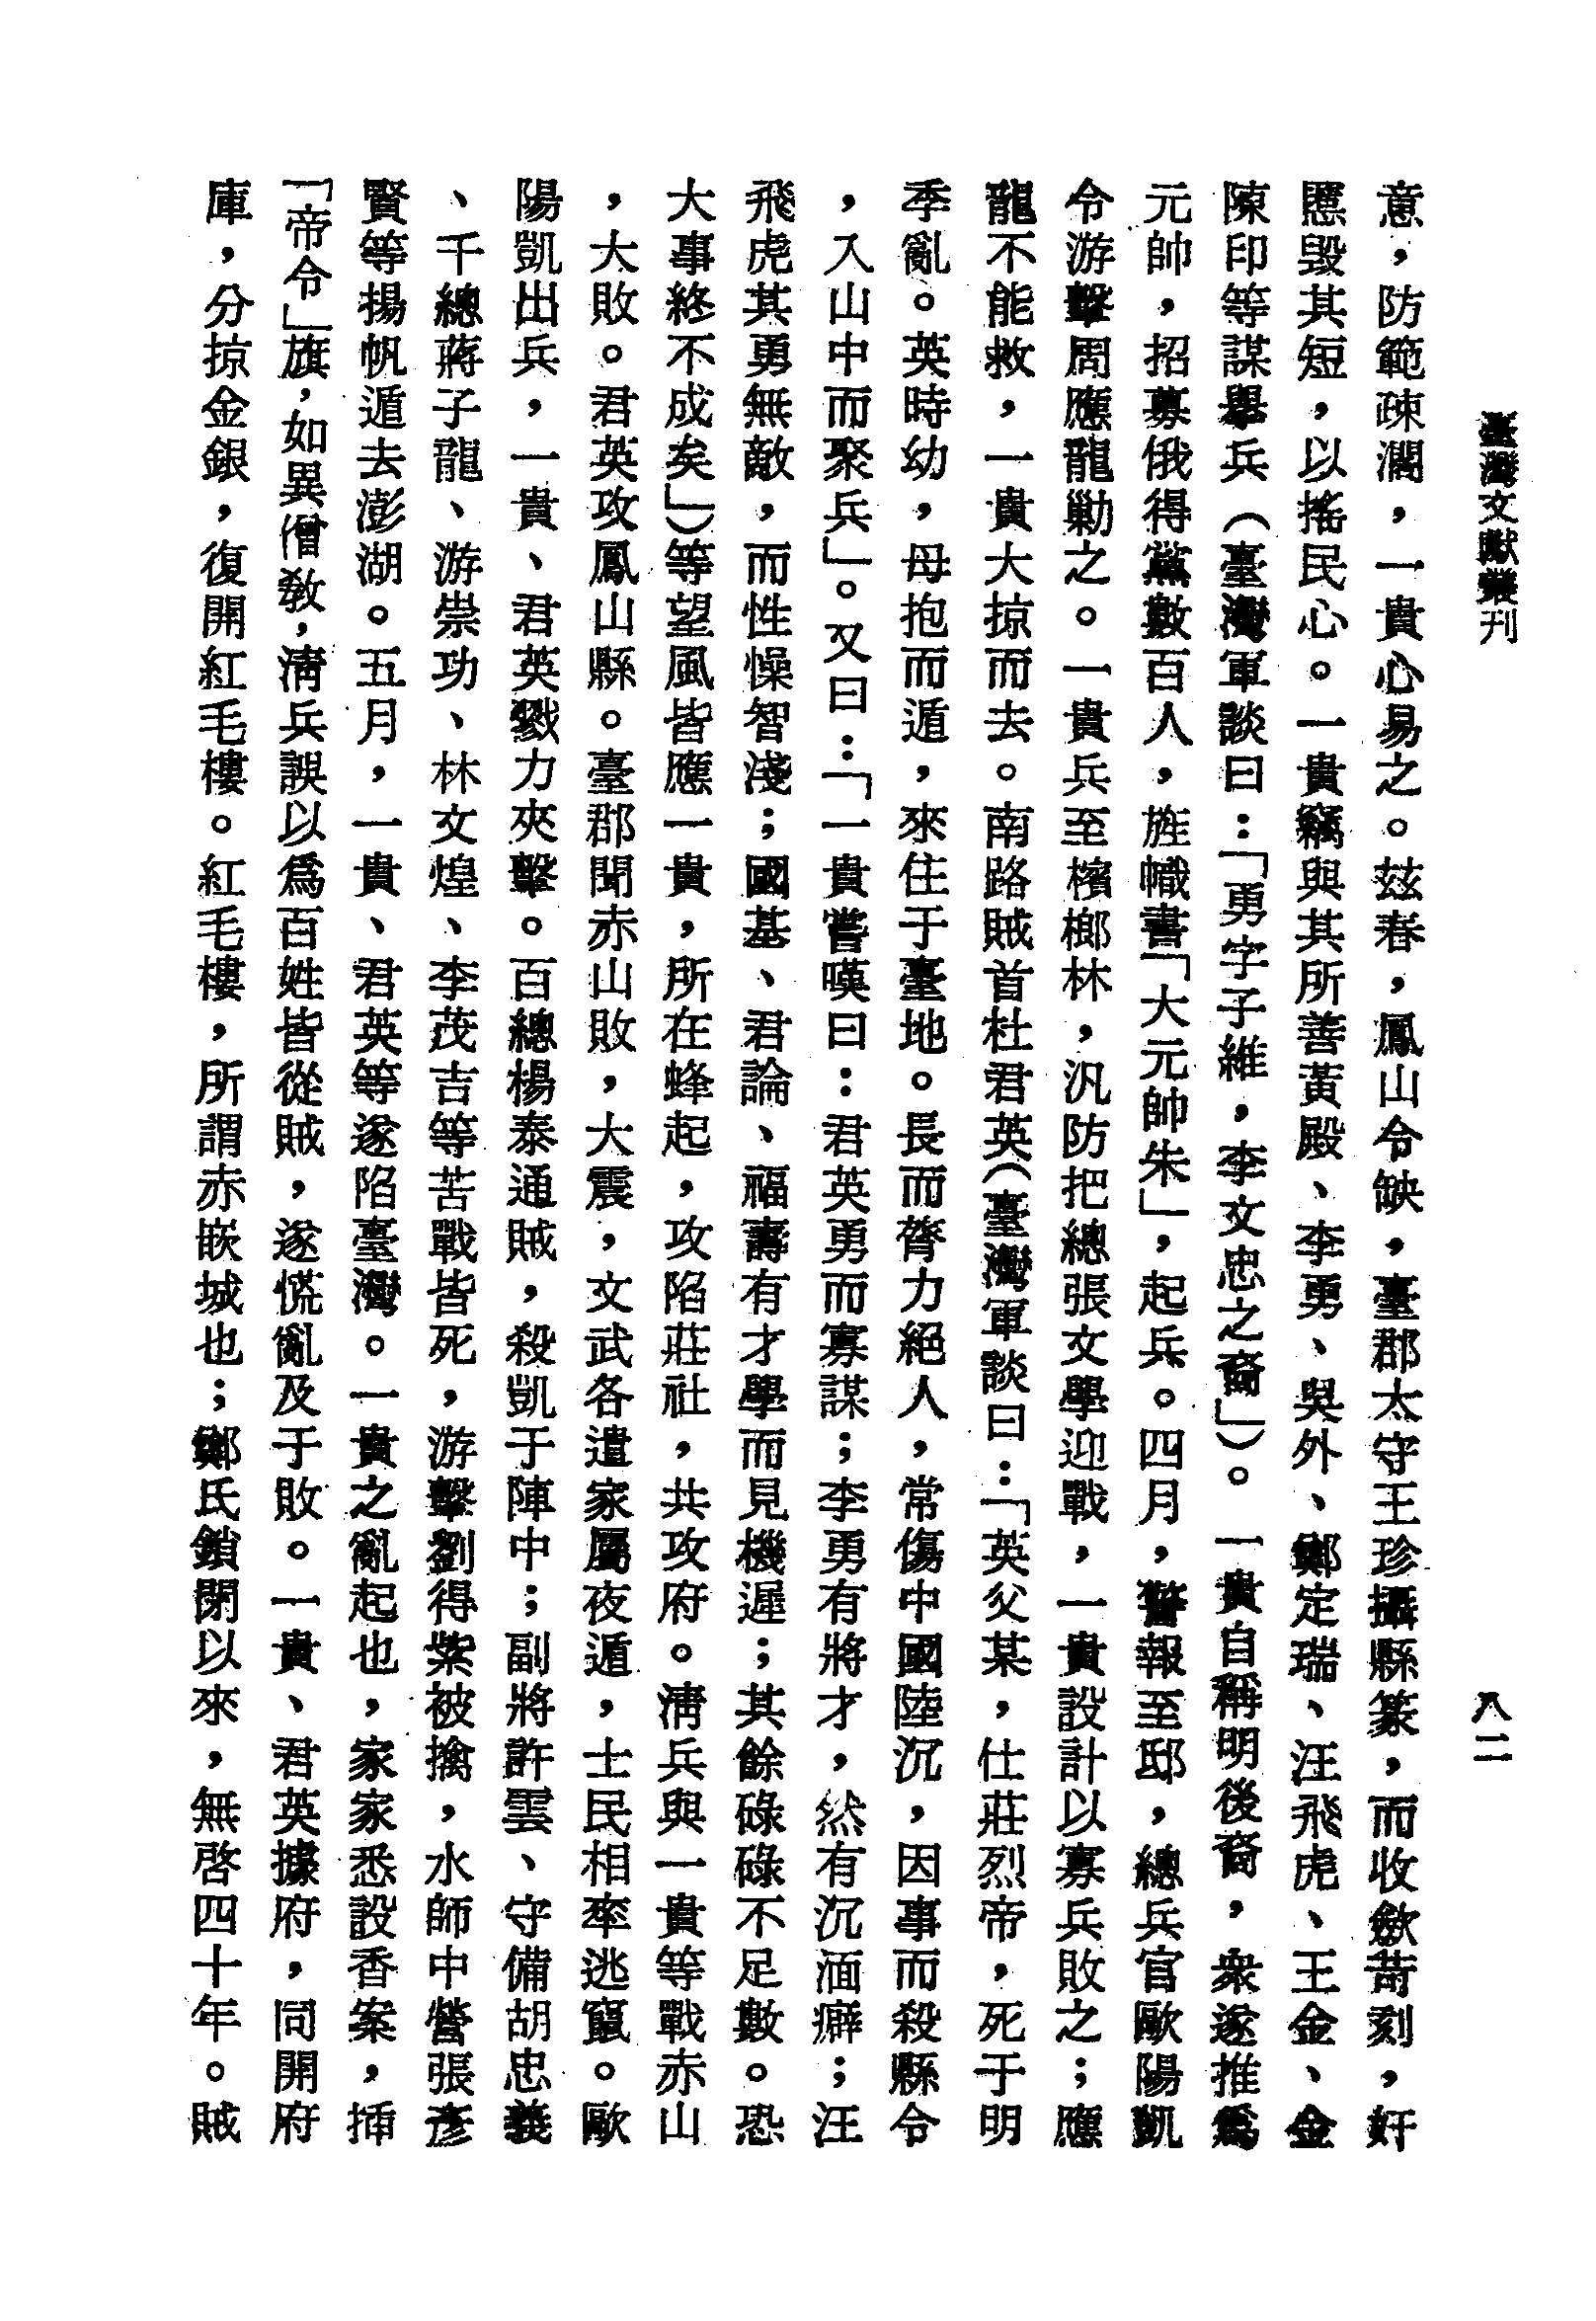 臺灣文獻叢刊
八二
意，防範疎濶，一貴心易之。玆春，鳳山令缺，臺郡太守王珍攝縣篆，而收歛苛刻，奸
慝毀其短，以搖民心。一貴竊與其所善黃殿、李勇、吳外、鄭定瑞、汪飛虎、王金、金
陳印等謀舉兵（臺灣軍談曰：「勇字子維，李文忠之裔」）。一貴自稱明後裔，衆遂推爲
元帥，招募俄得黨數百人，旌幟書「大元帥朱」，起兵。四月，警報至邸，總兵官歐陽凱
令游擊周應龍勦之。一貴兵至檳榔林，汎防把總張文學迎戰，一貴設計以寡兵敗之；應
龍不能救，一貴大掠而去。南路賊首杜君英（臺灣軍談曰：「英父某，仕莊烈帝，死于明
季亂。英時幼，母抱而遁，來住于臺地。長而膂力絕人，常傷中國陸沉，因事而殺縣令
，入山中而聚兵」。又曰：「一貴嘗嘆曰：君英勇而寡謀；李勇有將才，然有沉湎癖；汪
飛虎其勇無敵，而性懆智淺；國基、君論、福壽有才學而見機遲；其餘碌碌不足數。恐
大事終不成矣」）等望風皆應一貴，所在蜂起，攻陷莊社，共攻府。淸兵與一貴等戰赤山
，大敗。君英攻鳳山縣。臺郡聞赤山敗，大震，文武各遣家屬夜遁，士民相率逃竄。歐
陽凱出兵，一貴、君英戮力夾擊。百總楊泰通賊，殺凱于陣中；副將許雲、守備胡忠義
、千總蔣子龍、游崇功、林文煌、李茂吉等苦戰皆死，游擊劉得紫被擒，水師中營張彥
賢等揚帆遁去澎湖。五月，一貴、君英等遂陷臺灣。一貴之亂起也，家家悉設香案，揷
「帝令」旗，如異僧敎，淸兵誤以爲百姓皆從賊，遂慌亂及于敗。一貴、君英據府，同開府
庫，分掠金銀，復開紅毛樓。紅毛樓，所謂赤嵌城也；鄭氏鎖閉以來，無啓四十年。賊